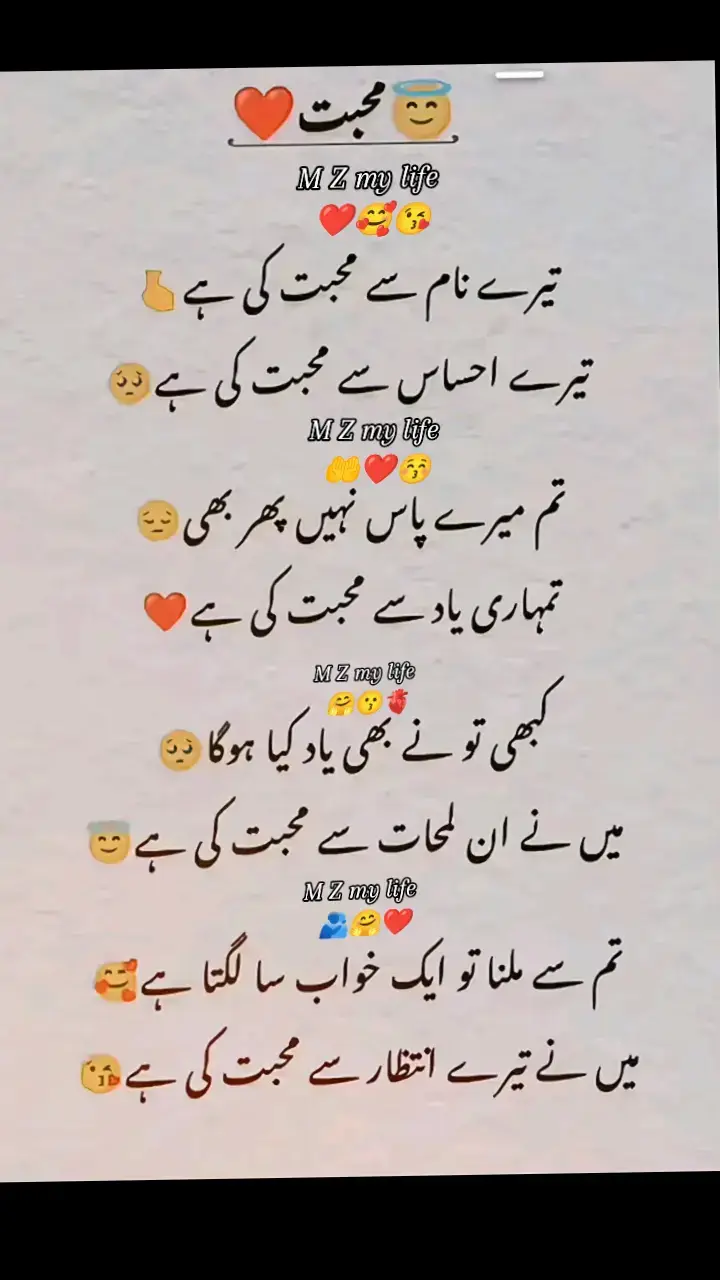 ❤️محبت😇
M Z my life
❤️🥰😘
تیرے نام سے محبت کی ہے🦶
تیرے احساس سے محبت کی ہے🥺
M Z my life
🤲❤️😚
تم میرے پاس نہیں پھر بھی😔
تمہاری یاد سے محبت کی ہے❤️
M Z my life
🤗😗🫀
کبھی تو نے بھی یاد کیا ہوگا🥺
میں نے ان لمحات سے محبت کی ہے😇
M Z my life
🫂🤗❤️
تم سے ملنا تو ایک خواب سا لگتا ہے🥰
میں نے تیرے انتظار سے محبت کی ہے😘